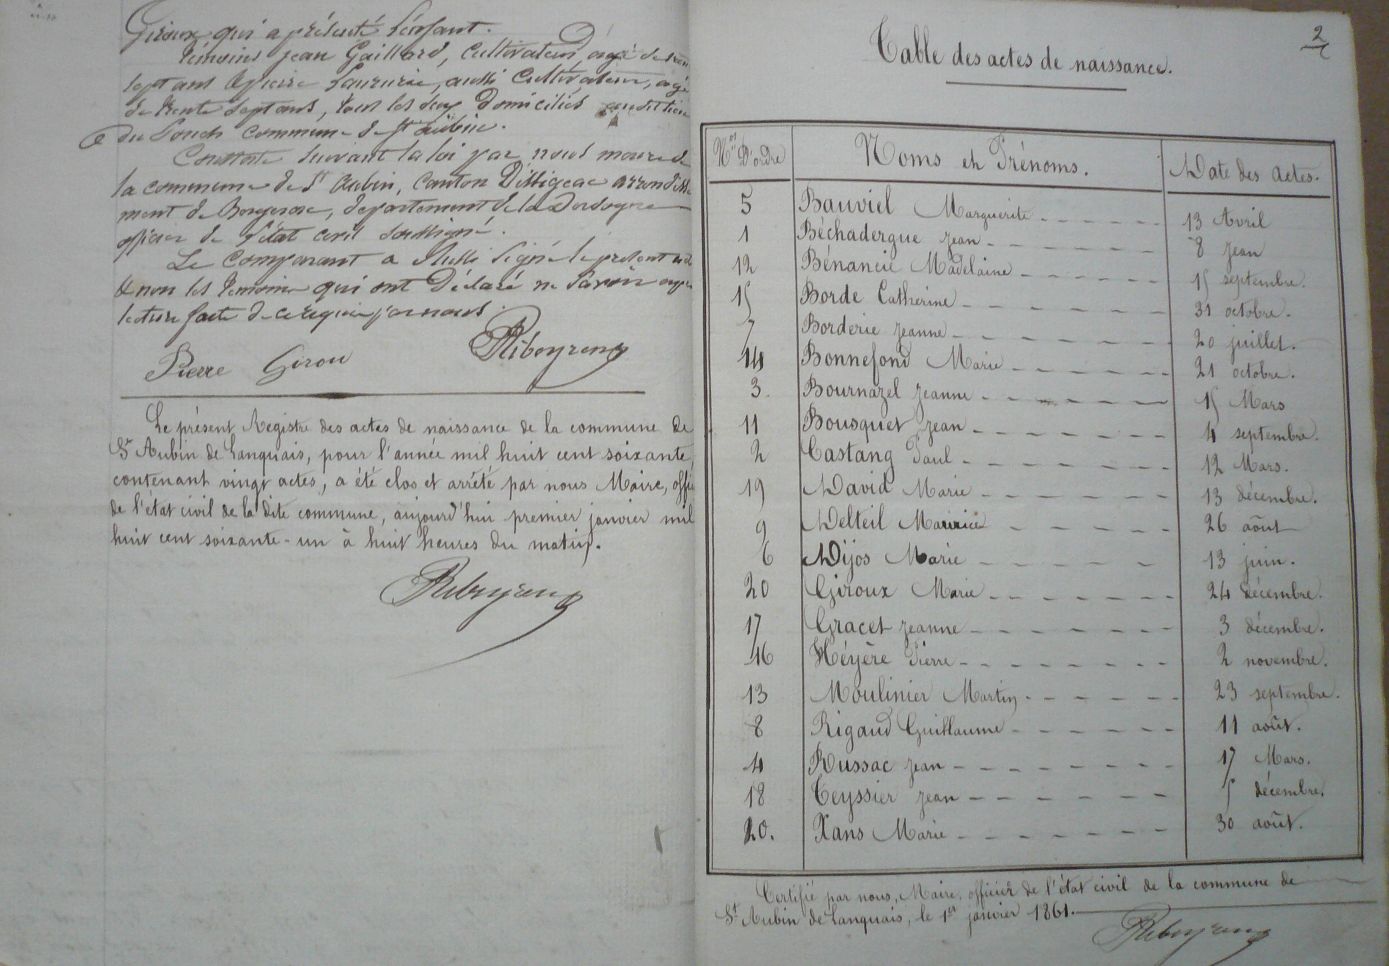 Giroux qui a présenté l'enfant.
Témoins Jean Gaillard, cultivateur, âgé de
sept ans et Pierre aussi Cultivateur, âgé
de trente sept ans, tous les deux domiciliés
du commune de St Aubin.
Constaté suivant la loi par nous maire de
la commune de St Aubin, Canton D'Issigeac arrondisse
ment de Bergerac, département de la Dordogne
officier de l'état civil soussigné.
Le Comparant a signé le présent acte
& non les témoins qui ont Déclaré ne savoir
lecture faite de ce requis par nous
Pierre Girou
Le présent Registre des actes de naissance de la commune de
St Aubin de Lanquais, pour l'année mil huit cent soixante,
contenant vingt actes, a été clos et arrêté par nous Maire, offi
de l'état civil de la dite commune, aujourd'hui premier janvier mil
huit cent soixante-un à huit heures du matin.
2
Table des actes de naissance.
Nos D'ordre Noms et Prénoms. Date des actes.
5 Bauviel Marguerite 13 Avril
1 Béchadergue Jean 8 Jean
12 Bénancie Madelaine 15 septembre.
15 Borde Catherine 31 octobre.
7 Borderie Jeanne 20 juillet.
14 Bonnefond Marie 21 octobre.
3. Bournazel Jeanne 15 Mars
11 Bousquet Jean 4 septembre.
2 Castang Paul 12 Mars.
19 David Marie 13 décembre.
9 Delteil Maurice 26 août
6 Dijos Marie 13 juin.
20 Giroux Marie 24 décembre.
17 Gracet Jeanne 3 décembre.
16 Héyère Pierre 2 novembre.
13 Moulinier Martin 23 septembre.
8 Rigaud Guillaume 11 août.
4 Russac Jean 17 Mars.
18 Teyssier Jean 5 décembre.
20. Xans Marie 30 août.
Certifié par nous, Maire, officier de l'état civil de la commune de
St Aubin de Lanquais, le 1er janvier 1861.